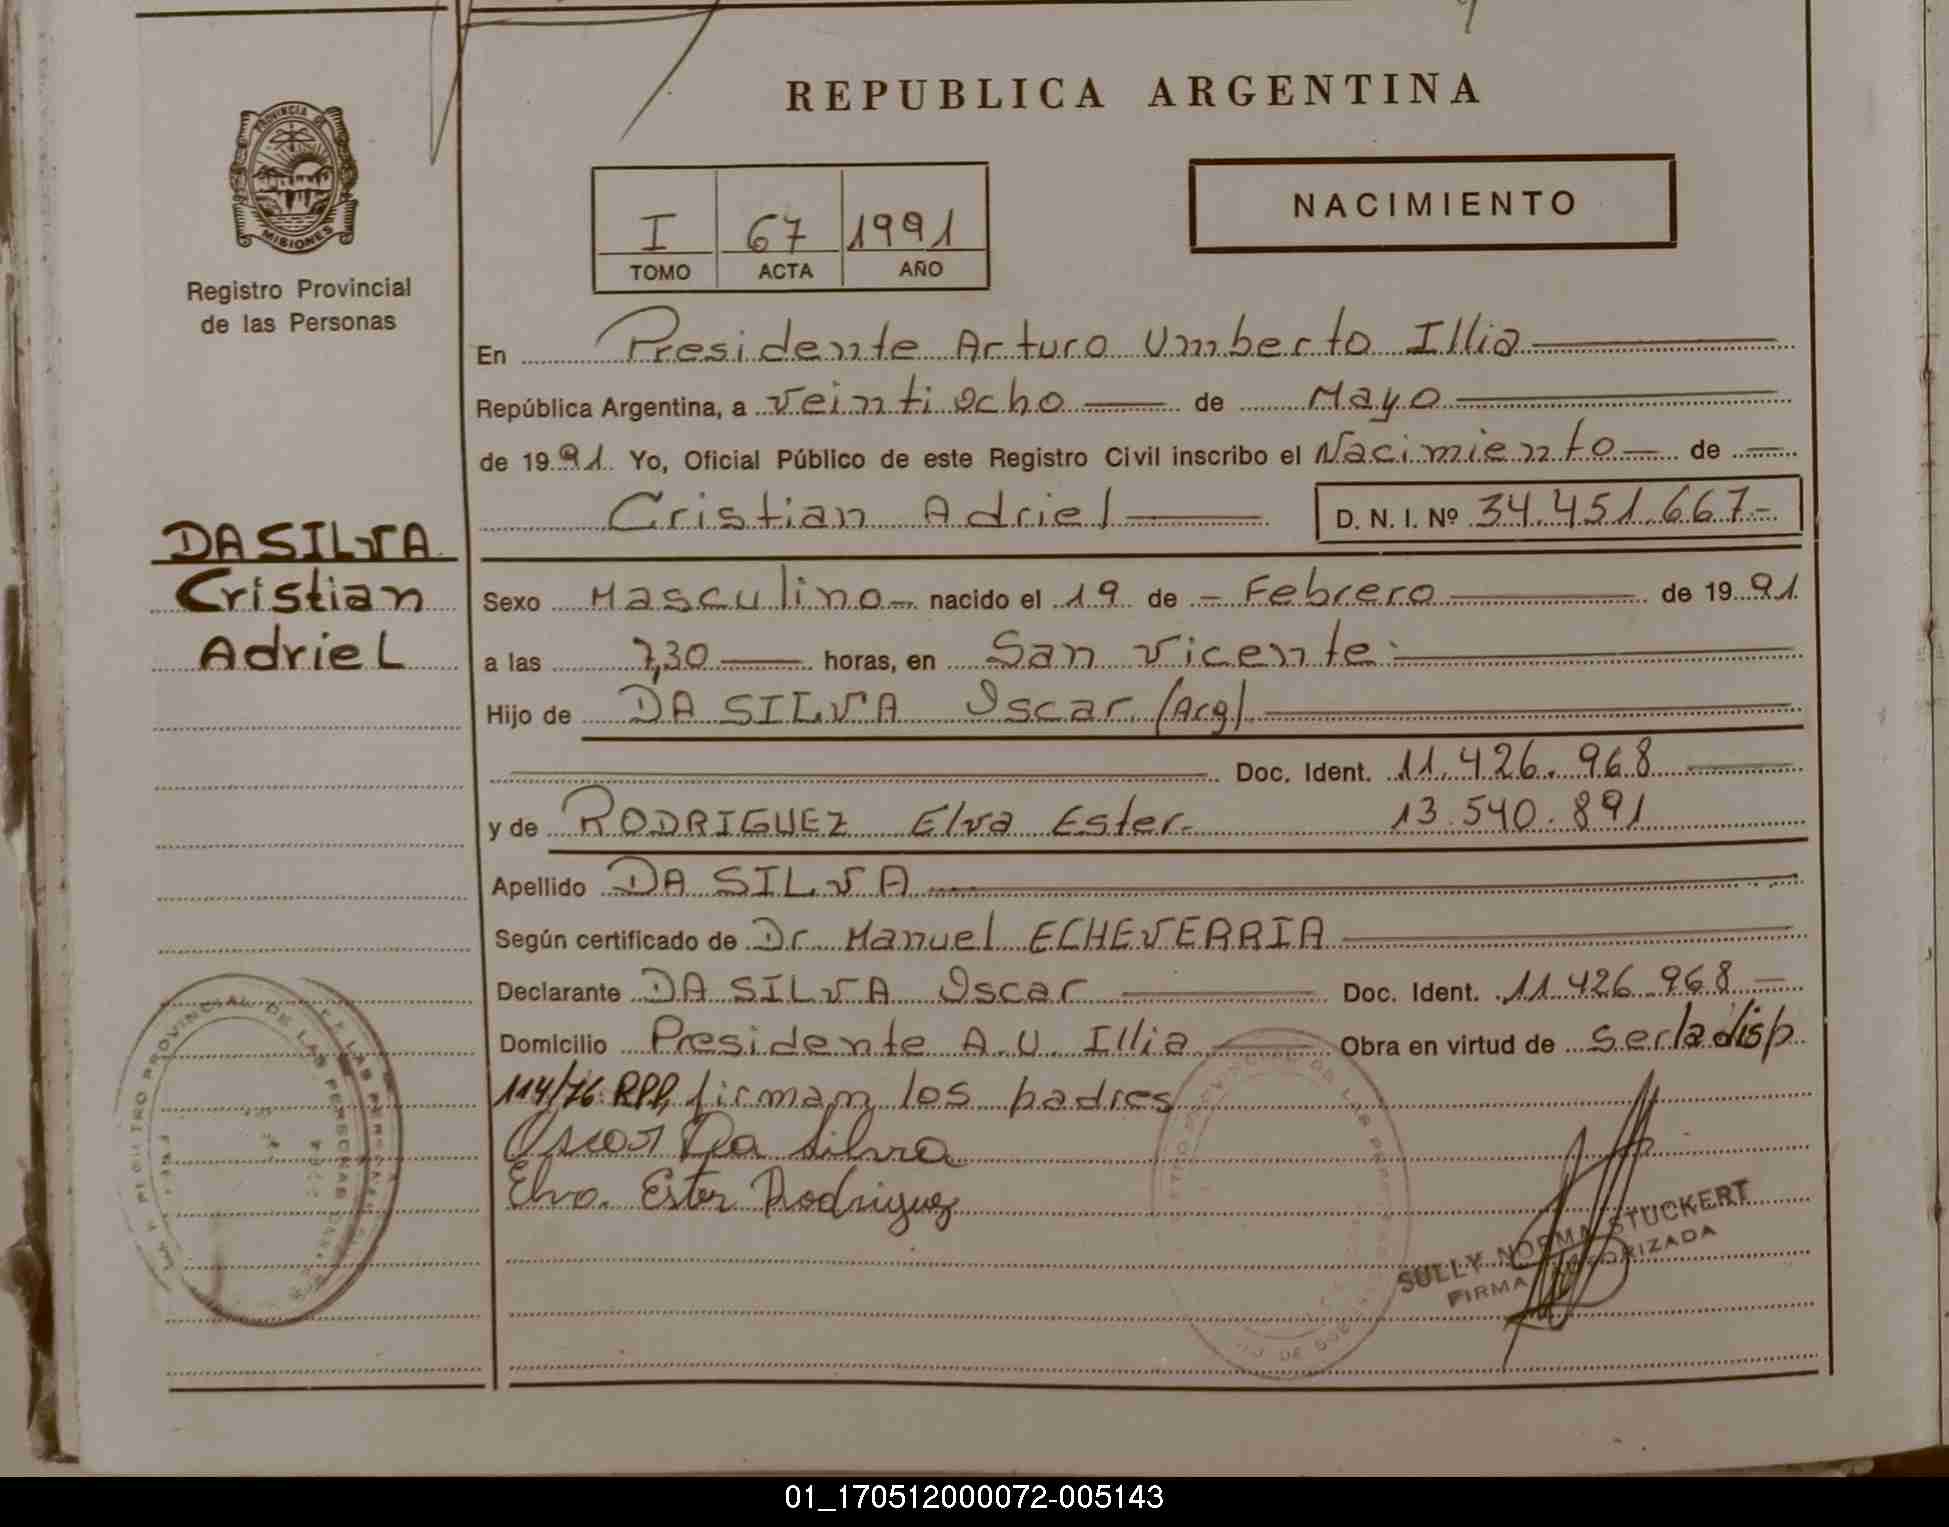 REPUBLICA ARGENTINA
PROVINCIA DE
MISIONES
Registro Provincial
de las Personas
I 67 1991
TOMO ACTA AÑO
NACIMIENTO
En Presidente Arturo Umberto Illia
República Argentina, a veintiocho de Mayo
de 1991 Yo, Oficial Público de este Registro Civil inscribo el Nacimiento de
Cristian Adriel D. N. I. Nº 34.451.667-
DA SILVA
Cristian
Adriel
Sexo Masculino nacido el 19 de Febrero de 1991
a las 7,30 horas, en San Vicente
Hijo de DA SILVA Oscar (Arg)
Doc. Ident. 11.426.968
y de RODRIGUEZ Elva Ester 13.540.891
Apellido DA SILVA
Según certificado de Dr Manuel ECHEVERRIA
Declarante DA SILVA Oscar Doc. Ident. 11.426.968
Domicilio Presidente A.U. Illia Obra en virtud de ser la disp.
114/76 RPP, firman los padres
Oscar Da Silva
Elva Ester Rodriguez
SULLY NORMA STUCKERT
FIRMA AUTORIZADA
REGISTRO PROVINCIAL DE LAS PERSONAS
01_170512000072-005143